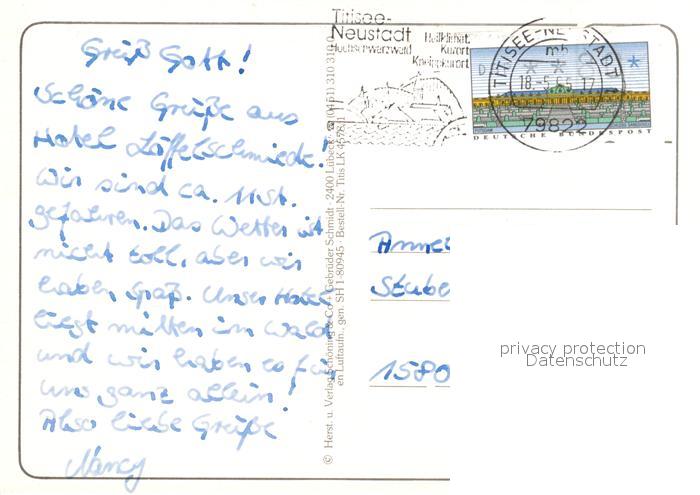 Grüß Gott!
Schöne Grüße aus
Hotel Löffelschmiede!
Wir sind ca. 11 St.
gefahren. Das Wetter ist
nicht toll, aber wir
haben Spaß. Unser Hotel
liegt mitten im Wald
und wir haben es für
uns ganz allein!
Also liebe Grüße
Nancy
© Herst. u. Verlag Schöning & Co + Gebrüder Schmidt · 2400 Lübeck · ☎ (0451) 310 310
en Luftaufn., gen. SH 1-80945 · Bestell-Nr. Titis LK 4578/1
Titisee-
Neustadt
Hochschwarzwald
Heilklimat.
Kurort
Kneippkurort
TITISEE-NEUSTADT
mh
18.-5.
79822
DEUTSCHE BUNDESPOST
Stube
1580
privacy protection
Datenschutz